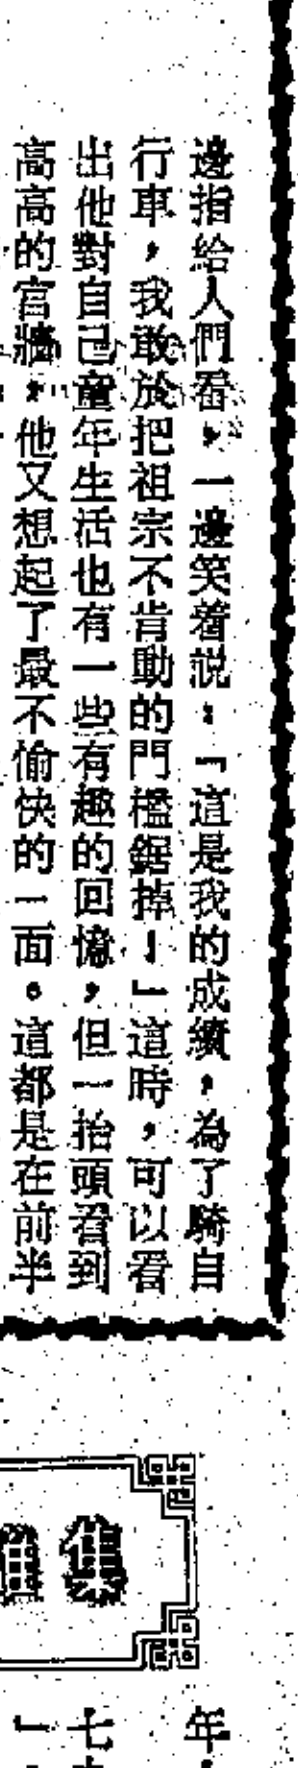 邊指給人們看，一邊笑着説：「這是我的成績，為了騎自
行車，我敢於把祖宗不肯動的門檻鋸掉！」這時，可以看
出他對自己童年生活也有一些有趣的回憶，但一抬頭看到
高高的宮牆，他又想起了最不愉快的一面。這都是在前半
集
年
七